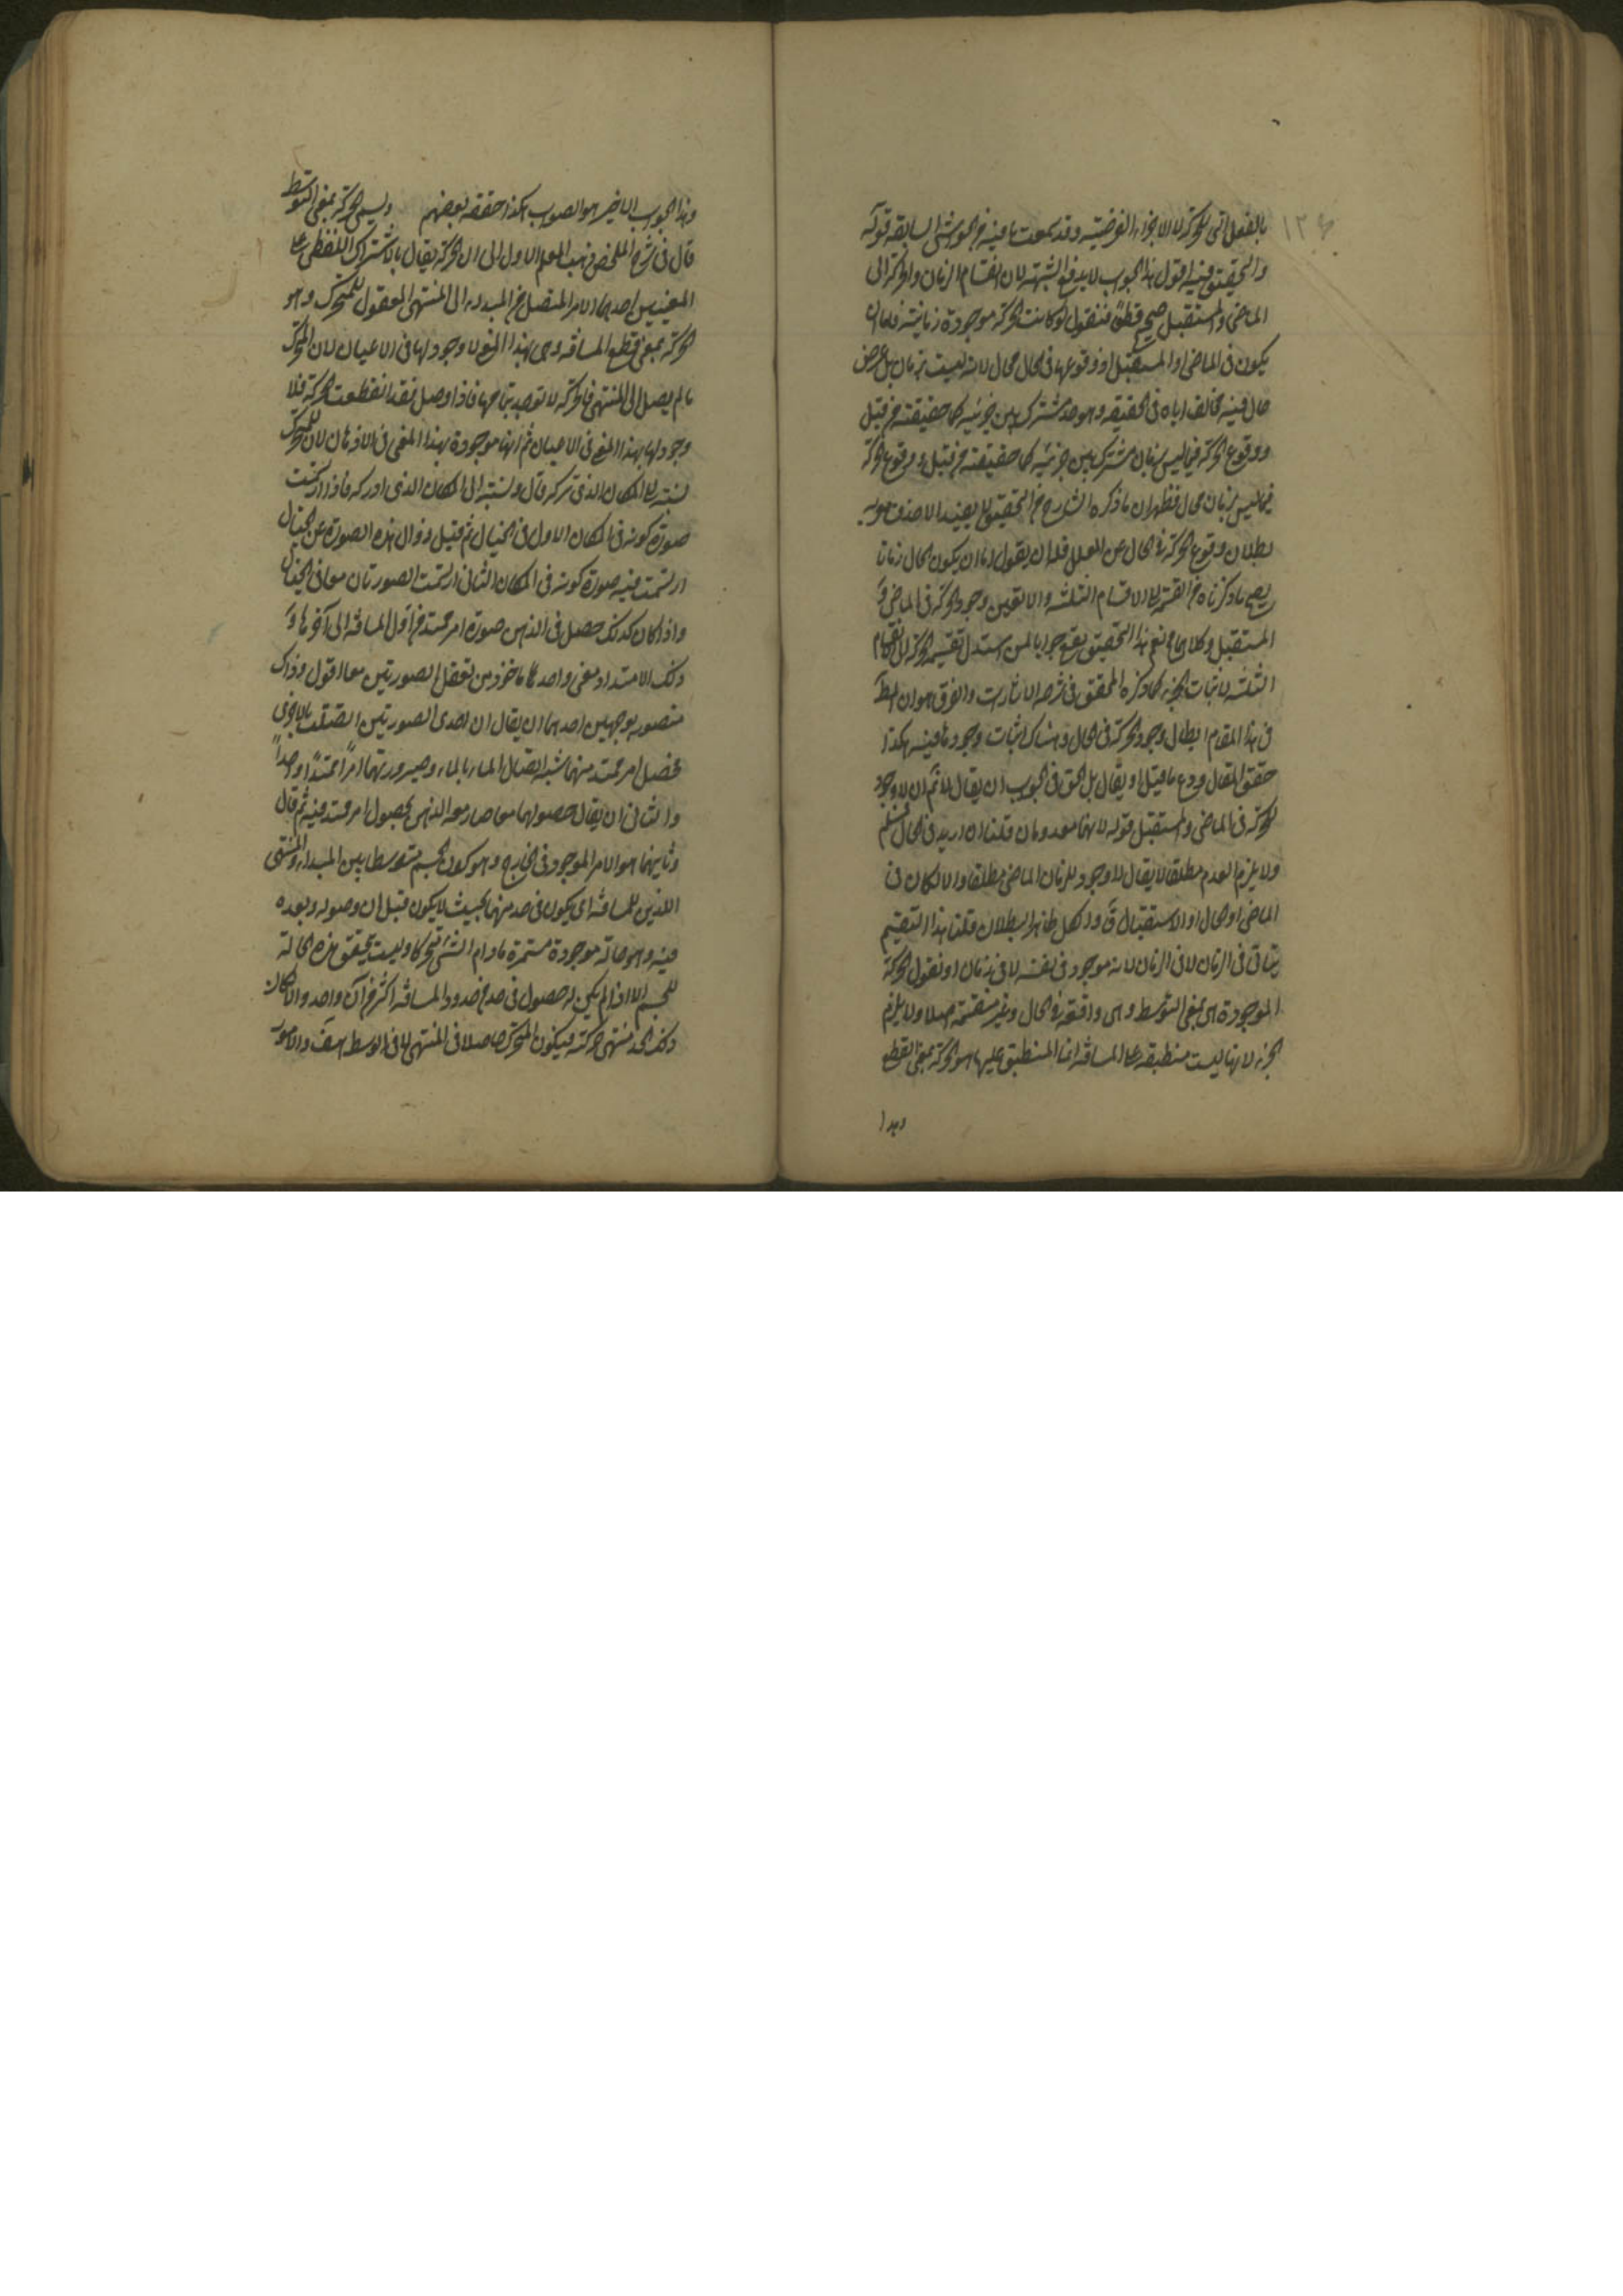 بالفعل التى للحركة لا الاجزاء الفرضية وقد سمعت ما فيه فى الحواشى السابقة قوله
والتحقيق فيه اقول هذا الجواب لا يدفع الشبهة لان انقسام الزمان والحركة الى
الماضى والمستقبل صحيح قطعا فنقول لو كانت الحركة موجودة زمانية فاما ان
يكون فى الماضى او المستقبل او وقوعها فى الحال محال لانه ليست بزمان بل عرض
حال فيه مخالف اياه فى الحقيقة وهو حد مشترك بين جزئيه كما حقيقته من قبل
ووقوع الحركة فيما ليس بزمان مشترك بين جزئيه كما حقيقته من قبل ووقوع الحركة
فيما ليس بزمان محال فظهر ان ما ذكره الشارح من التحقيق لا يفيد الا صدق
بطلان وقوع الحركة فى الحال عن المعلل فله ان يقول اما ان يكون الحال زمانا
يصح ما ذكرناه من القسمة الى الاقسام الثلثة والا تعين وجود الحركة فى الماضى و
المستقبل وكلاهما مح نعم هذا التحقيق يقع جوابا لمن استدل بتقسيم الحركة الى الاقسام
الثلثة لاثبات الجزء كما ذكره المحقق فى شرح الاشارات والفرق هو ان المط
فى هذا المقام ابطال وجود الحركة فى الحال وهناك اثبات وجودها فيه هكذا
حقق المقال ودع ما قيل او يقال بل الحق فى الجواب ان يقال لا نم ان لا وجود
للحركة فى الماضى والمستقبل قوله لانهما معدومان قلنا ان اريد فى الحال فمسلم
ولا يلزم العدم مطلقا لا يقال لا وجود للزمان الماضى مطلقا والا لكان فى
الماضى او الحال او الاستقبال والكل ظاهر البطلان قلنا هذا التقسيم
يتاتى فى الزمانى لا فى الزمان لانه موجود فى نفسه لا فى زمان او نقول الحركة
الموجودة هى بمعنى التوسط وهى واقعة فى الحال وغير منقسمة اصلا ولا يلزم
الجزء لانها ليست منطبقة على المسافة انما المنطبق عليها هو الحركة بمعنى القطع
وهذا
وهذا الجواب الاخير هو الصواب هكذا حققه بعضهم ويسمى الحركة بمعنى التوسط
قال فى شرح الملخص ذهب المعلم الاول الى ان الحركة يقال بالاشتراك اللفظى على
المعنيين احدهما الامر المتصل من المبدء الى المنتهى المعقول للمتحرك وهو
الحركة بمعنى قطع المسافة وهى بهذا المعنى لا وجود لها فى الاعيان لان المتحرك
ما لم يصل الى المنتهى فالحركة لا توجد بتمامها فاذا وصل فقد انقطعت الحركة فلا
وجود لها بهذا المعنى فى الاعيان ثم انها موجودة بهذا المعنى فى الاذهان لان للمتحرك
نسبة الى المكان الذى تركه قال ونسبة الى المكان الذى ادركه فاذا ارتسمت
صورة كونه فى المكان الاول فى الخيال ثم قبل زوال هذه الصورة عن الخيال
ارتسمت فيه صورة كونه فى المكان الثانى ارتسمت الصورتان معا فى الخيال
واذا كان كذلك حصل فى الذهن صورة امر ممتد من اول المسافة الى آخرها و
ذلك الامتداد معنى واحد ماخوذ من تعقل الصورتين معا اقول وذلك
متصور بوجهين احدهما ان يقال ان احدى الصورتين اتصلت بالاخرى
فحصل امر ممتد منهما شبه اتصال الماء بالماء وصيرورتهما امرا ممتدا واحدا
والثانى ان يقال حصولهما معا صار معد الذهن لحصول امر ممتد فيه ثم قال
وثانيهما هو الامر الموجود فى الخارج وهو كون الجسم متوسطا بين المبداء والمنتهى
اللذين للمسافة اى يكون فى حد منهما بحيث لا يكون قبل ان وصوله وبعده
فيه وهو حالة موجودة مستمرة ما دام الشئ متحركا وليست يتحقق هذه الحالة
للجسم الا اذا لم يكن له حصول فى حد من حدود المسافة اكثر من آن واحد والا كان
ذلك الحد منتهى حركته فيكون المتحرك حاصلا فى المنتهى لا فى الوسط هف والامور